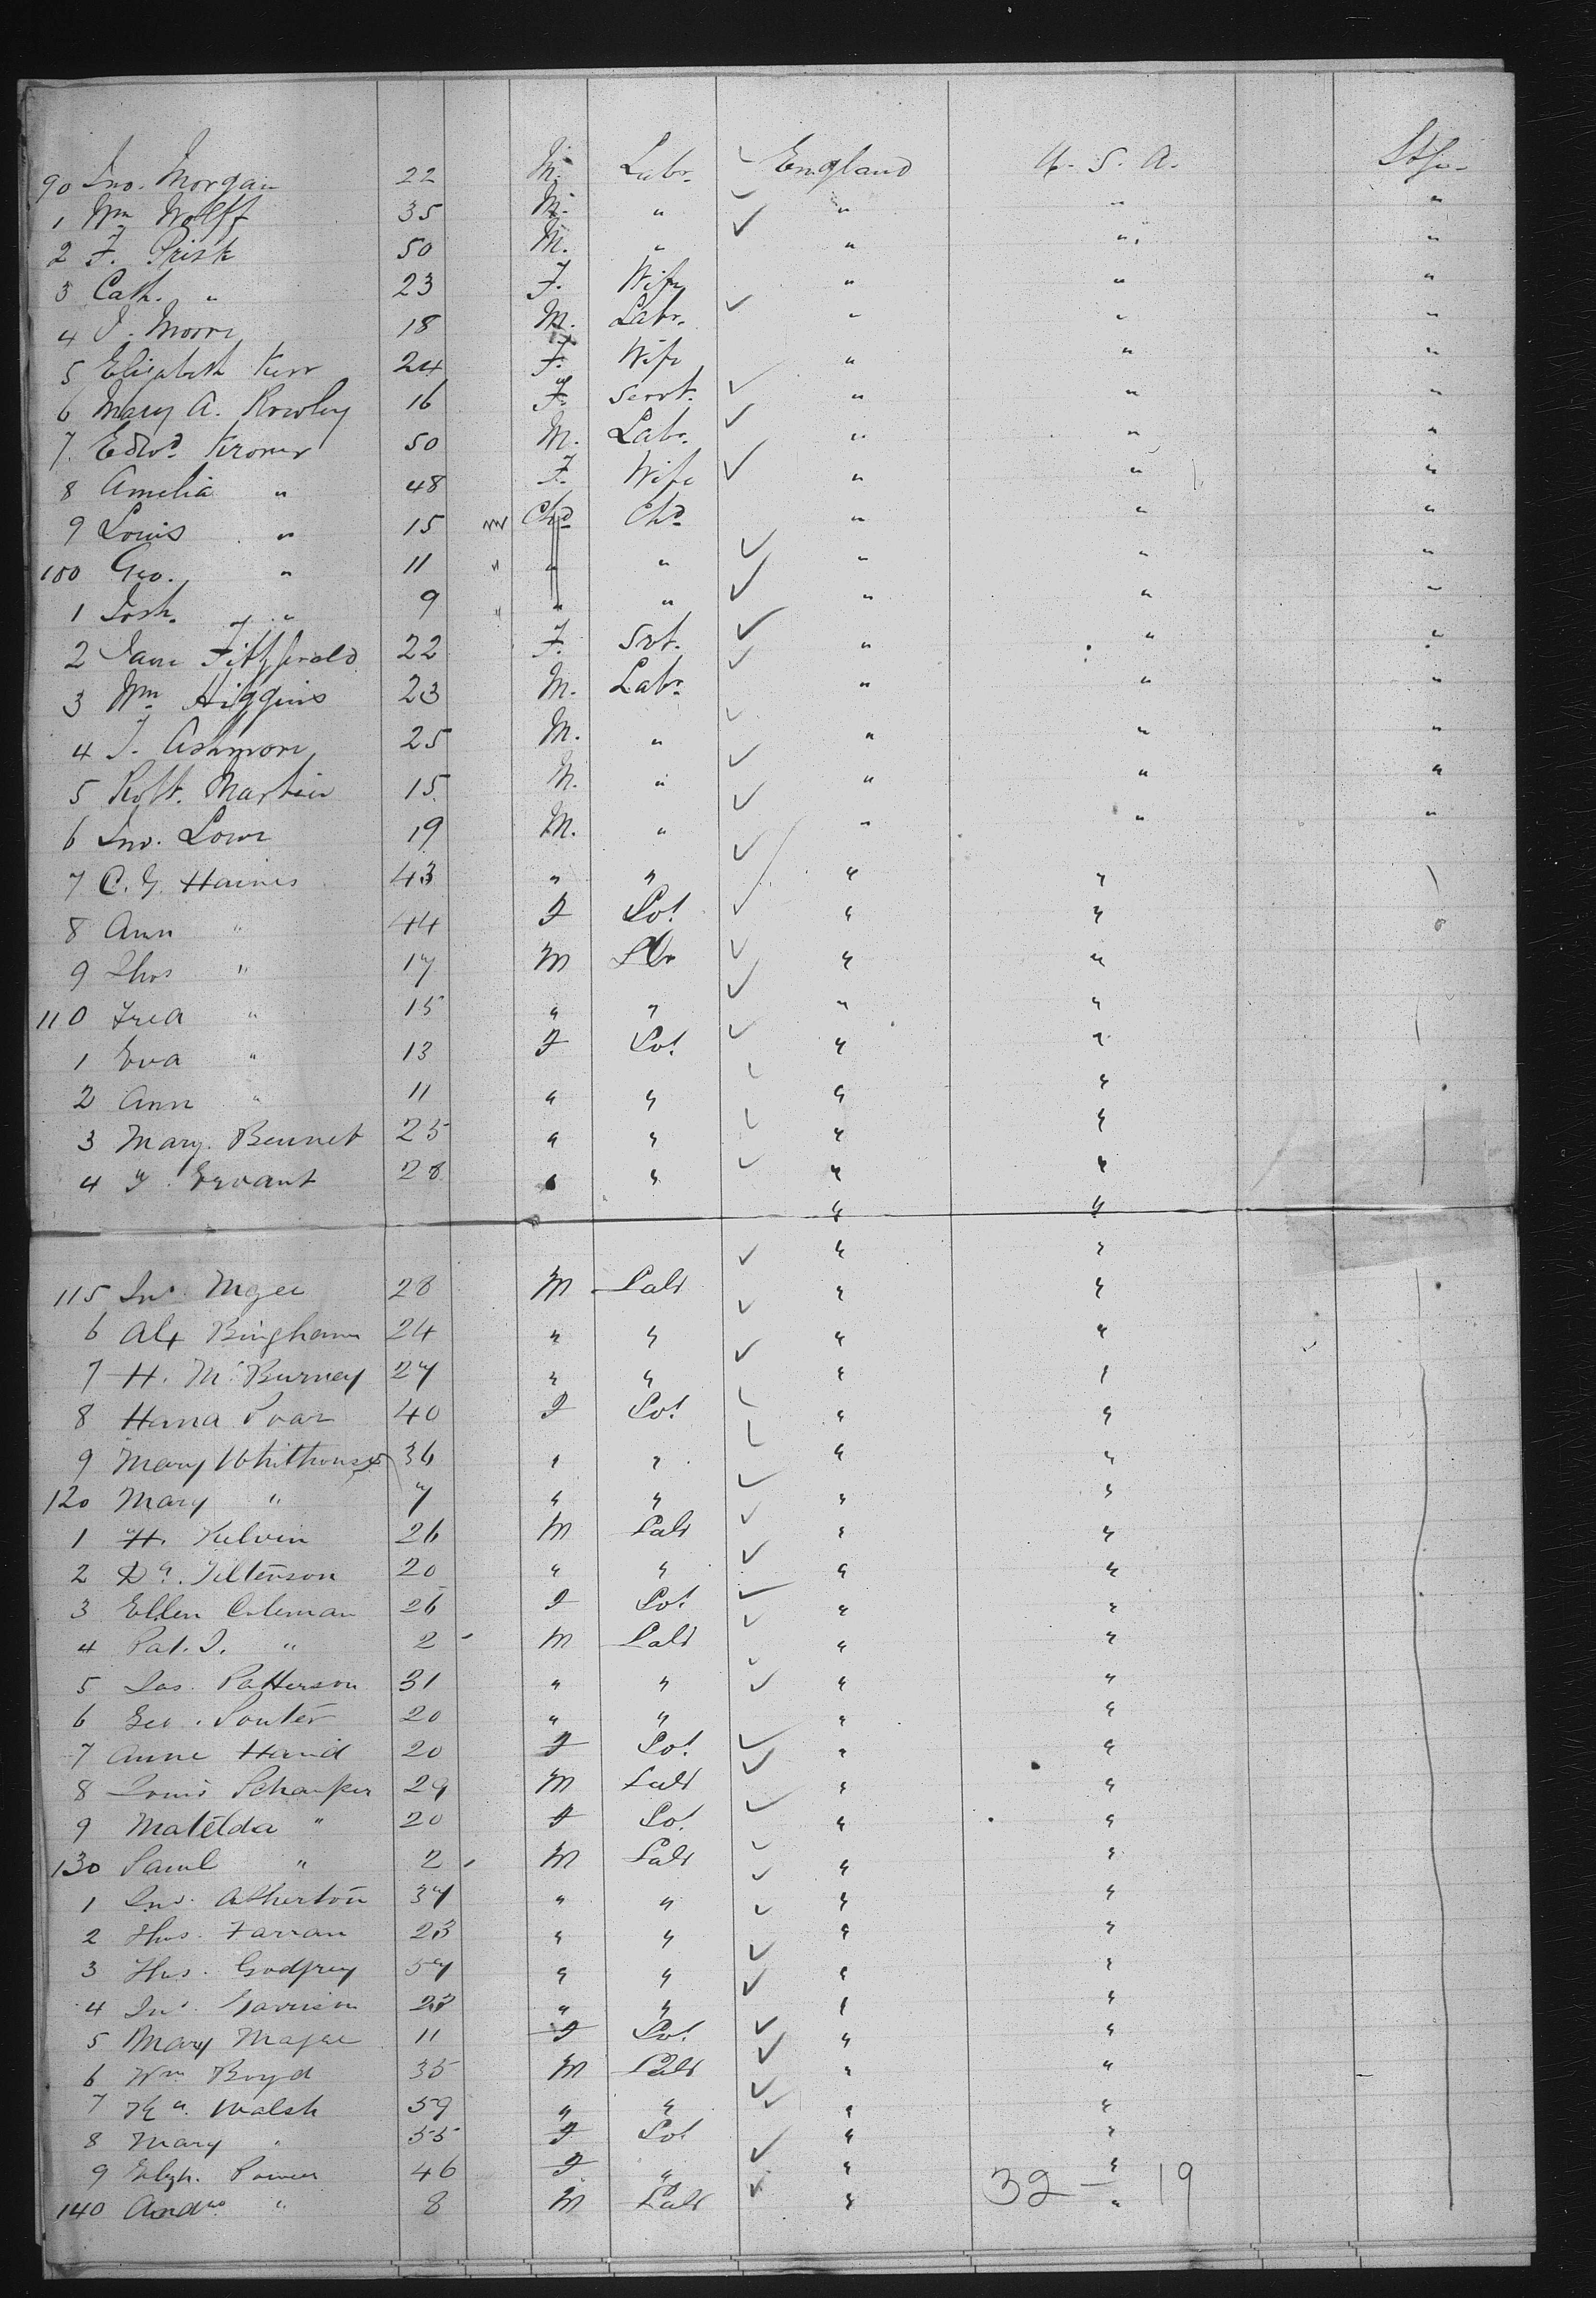 90 Jno. Morgan 22 M. Labr. England U. S. A. Stge
1 Wm Wolff 35 M. " " " "
2 F. Prisk 50 M. " " " "
3 Cath. " 23 F. Wife " " "
4 J. Moore 18 M. Labr. " " "
5 Elizabeth Kerr 24 F. Wife " " "
6 Mary A. Rowley 16 F. Servt. " " "
7 Edwd. Kroner 50 M. Labr. " " "
8 Amelia " 48 F. Wife " " "
9 Louis " 15 Chd Chd " " "
100 Geo. " 11 " " " " " "
1 Josh. " 9 " " " " " "
2 Jane Fitzgerald 22 F. Svt. " " "
3 Wm Higgins 23 M. Labr " " "
4 J. Ashmore 25 M. " " " "
5 Robt. Martin 15 M. " " " "
6 Jno. Lowe 19 M. " " " "
7 C. G. Haines 43 " " " "
8 Ann " 44 F Svt " "
9 Thos " 17 M Lbr " "
110 Fred " 15 " " " "
1 Eva " 13 F Svt " "
2 Ann " 11 " " " "
3 Mary Bennet 25 " " " "
4 28 " " " "
" "
" "
115 Jno. Mgee 28 M Labr " "
6 Alx Bingham 24 " " " "
7 H. McBurney 27 " " " "
8 Hana 40 F Svt " "
9 Mary Whithouse 36 " " " "
120 Mary " 7 " " " "
1 H. Kelvin 26 M Labr " "
2 20 " " " "
3 Ellen Coleman 26 F Svt " "
4 Pat. J. " 2 M Labr " "
5 Jas. Patterson 31 " " " "
6 Geo. Souter 20 " " " "
7 Anne Hand 20 F Svt " "
8 Louis 29 M Labr " "
9 Matelda " 20 F Svt " "
130 Saml " 2 M Labr " "
1 Jno. Atherton 37 " " " "
2 Thos. Farran 23 " " " "
3 Thos. Godfrey 57 " " " "
4 Jno. Garrison " " " "
5 Mary Magee 11 F Svt " "
6 Wm Boyd 35 M Labr " "
7 Walsh 59 " " " "
8 Mary " 55 F Svt " "
9 Elizh. Power 46 F " " "
140 Andw " 8 M Labr " "
32 — 19